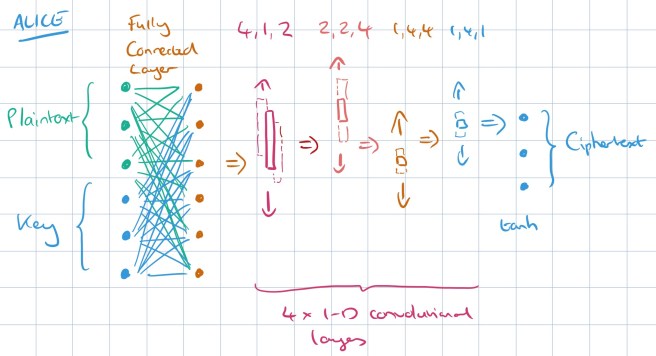 ALICE
Fully
Connected
Layer
4,1,2
2,2,4
1,4,4
1,4,1
Plaintext
Key
Ciphertext
tanh
4 x 1-D convolutional
layers